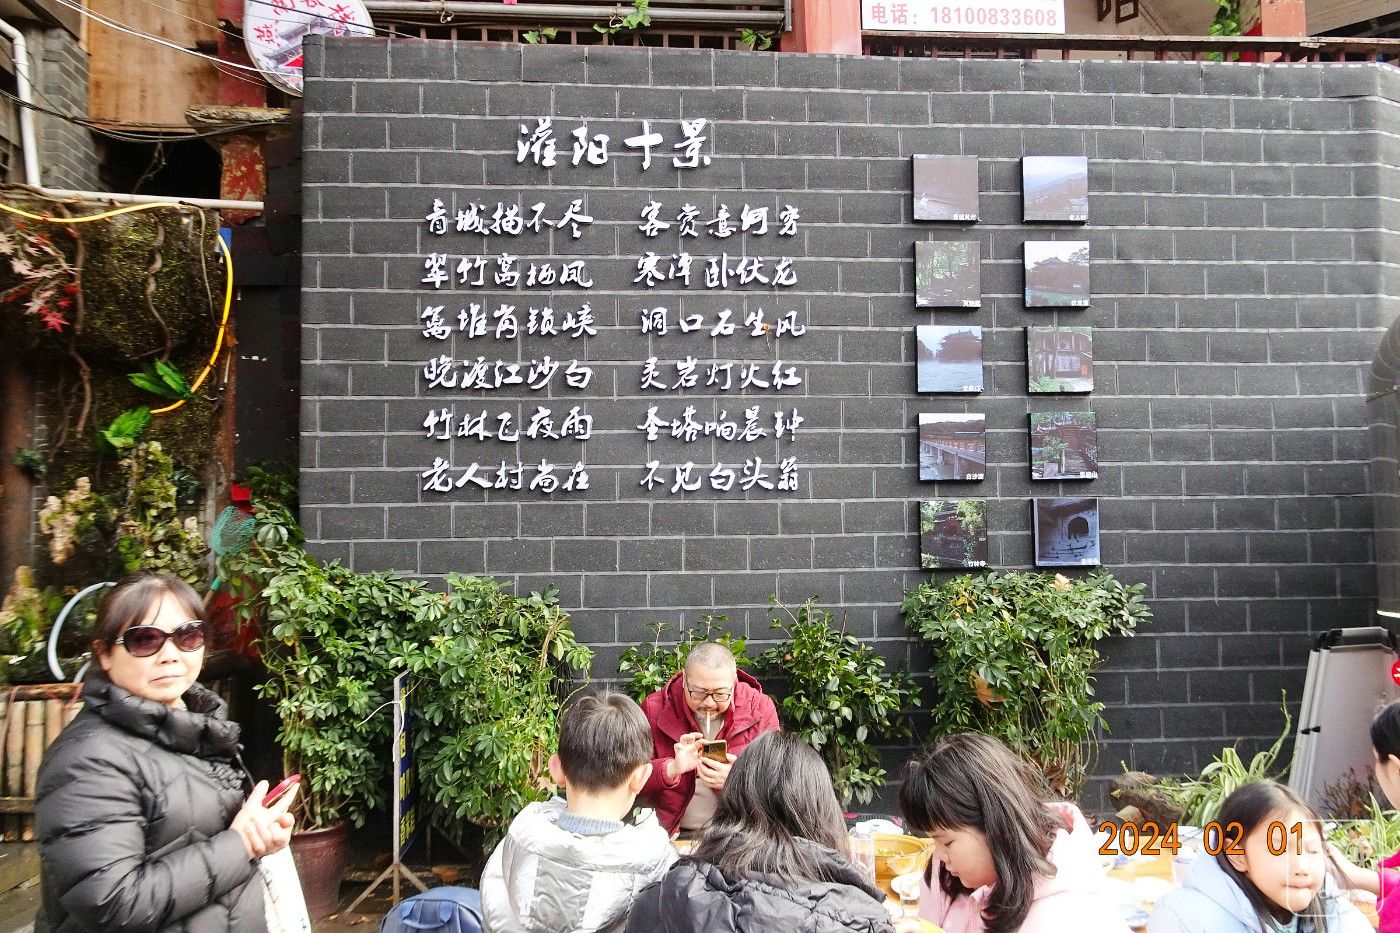 电话：18100833608
灌阳十景
青城描不尽 客赏意何穷
翠竹窝栖凤 寒潭卧伏龙
篙堆岗锁峡 洞口石生风
晚渡江沙白 灵岩灯火红
竹林飞夜雨 圣塔响晨钟
老人村尚在 不见白头翁
老人村
白沙渡
竹林寺
2024 02 01